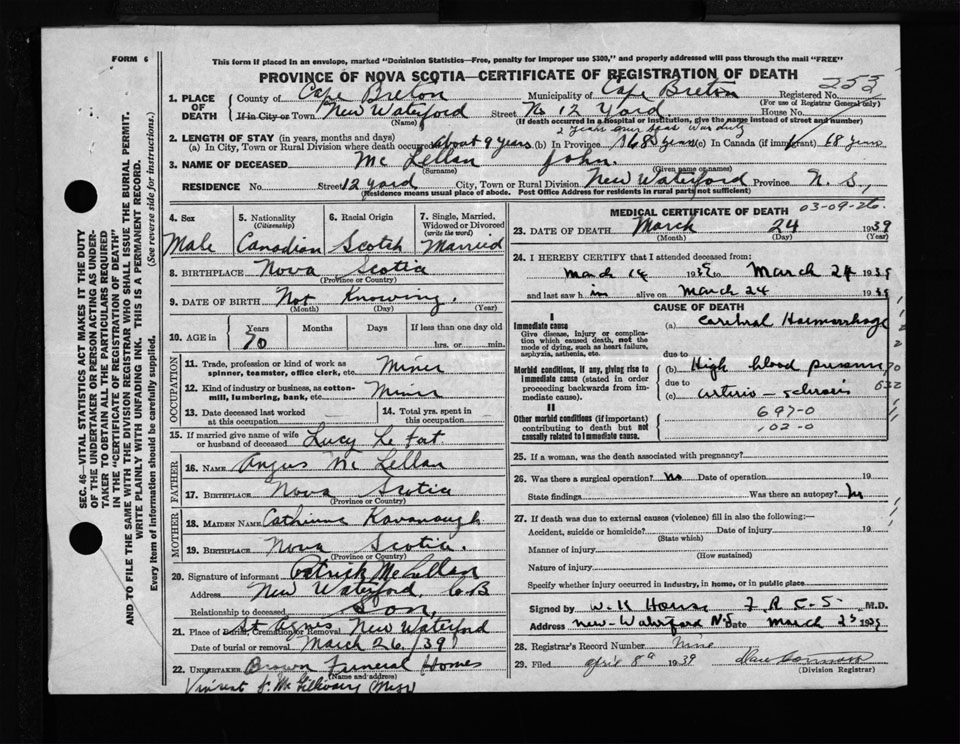 FORM 6
This form if placed in an envelope, marked "Dominion Statistics—Free, penalty for improper use $300," and properly addressed will pass through the mail "FREE"
PROVINCE OF NOVA SCOTIA—CERTIFICATE OF REGISTRATION OF DEATH
253
1. PLACE OF DEATH
County of Cape Breton Municipality of Cape Breton Registered No.
(For use of Registrar General only)
If in City or Town New Waterford Street No 12 Yard House No.
(Name) (If death occurred in a hospital or institution, give the name instead of street and number)
2 years over seas war duty
2. LENGTH OF STAY (in years, months and days)
(a) In City, Town or Rural Division where death occurred about 9 years (b) In Province 68 years (c) In Canada (if immigrant) 68 years
3. NAME OF DECEASED Mc Lellan John.
(Surname) (Given name or names)
RESIDENCE No. Street 12 yard City, Town or Rural Division New Waterford Province N. S.,
(Residence means usual place of abode. Post Office Address for residents in rural parts not sufficient)
4. Sex Male
5. Nationality (Citizenship) Canadian
6. Racial Origin Scotch
7. Single, Married, Widowed or Divorced (write the word) Married
8. BIRTHPLACE Nova Scotia
(Province or Country)
9. DATE OF BIRTH Not Knowing.
(Month) (Day) (Year)
10. AGE in Years 70 Months Days If less than one day old hrs. or min.
OCCUPATION
11. Trade, profession or kind of work as spinner, teamster, office clerk, etc. Miner
12. Kind of industry or business, as cotton-mill, lumbering, bank, etc. Miner
13. Date deceased last worked at this occupation
14. Total yrs. spent in this occupation
15. If married give name of wife or husband of deceased Lucy Le Fat
FATHER
16. NAME Angus Mc Lellan
17. BIRTHPLACE Nova Scotia
(Province or Country)
MOTHER
18. MAIDEN NAME Catherine Kavanaugh
19. BIRTHPLACE Nova Scotia.
(Province or Country)
20. Signature of informant Patrick McLellan
Address New Waterford, C.B
Relationship to deceased Son.
21. Place of Burial, Cremation or Removal St Agnes New Waterford
Date of burial or removal March 26/39
22. UNDERTAKER Brown Funeral Homes
(Name and address)
Vincent J. Mc Gillivary
MEDICAL CERTIFICATE OF DEATH
03-09-26.
23. DATE OF DEATH March 24 1939
(Month) (Day) (Year)
24. I HEREBY CERTIFY that I attended deceased from:
March 14 1939 to March 24 1939
and last saw him alive on March 24 1939
CAUSE OF DEATH
I
Immediate cause
Give disease, injury or complication which caused death, not the mode of dying, such as heart failure, asphyxia, asthenia, etc.
(a) Cerebral Haemorrhage
due to
Morbid conditions, if any, giving rise to immediate cause (stated in order proceeding backwards from immediate cause).
(b) High blood pressure
due to
(c) arterio-sclerosis
II
Other morbid conditions (if important) contributing to death but not causally related to immediate cause.
697-0
102-0
25. If a woman, was the death associated with pregnancy?
26. Was there a surgical operation? No Date of operation 19
State findings Was there an autopsy? No
27. If death was due to external causes (violence) fill in also the following:—
Accident, suicide or homicide? Date of injury 19
(State which)
Manner of injury
(How sustained)
Nature of injury
Specify whether injury occurred in industry, in home, or in public place
Signed by W. K House F. R. C. S. M.D.
Address New-Waterford N.S Date March 25 1939
28. Registrar's Record Number Nine
29. Filed April 8th 1939
(Division Registrar)
SEC. 46—VITAL STATISTICS ACT MAKES IT THE DUTY
OF THE UNDERTAKER OR PERSON ACTING AS UNDER-
TAKER TO OBTAIN ALL THE PARTICULARS REQUIRED
IN THE "CERTIFICATE OF REGISTRATION OF DEATH"
AND TO FILE THE SAME WITH THE DIVISION REGISTRAR WHO SHALL ISSUE THE BURIAL PERMIT.
WRITE PLAINLY WITH UNFADING INK. THIS IS A PERMANENT RECORD.
Every item of information should be carefully supplied. (See reverse side for instructions.)